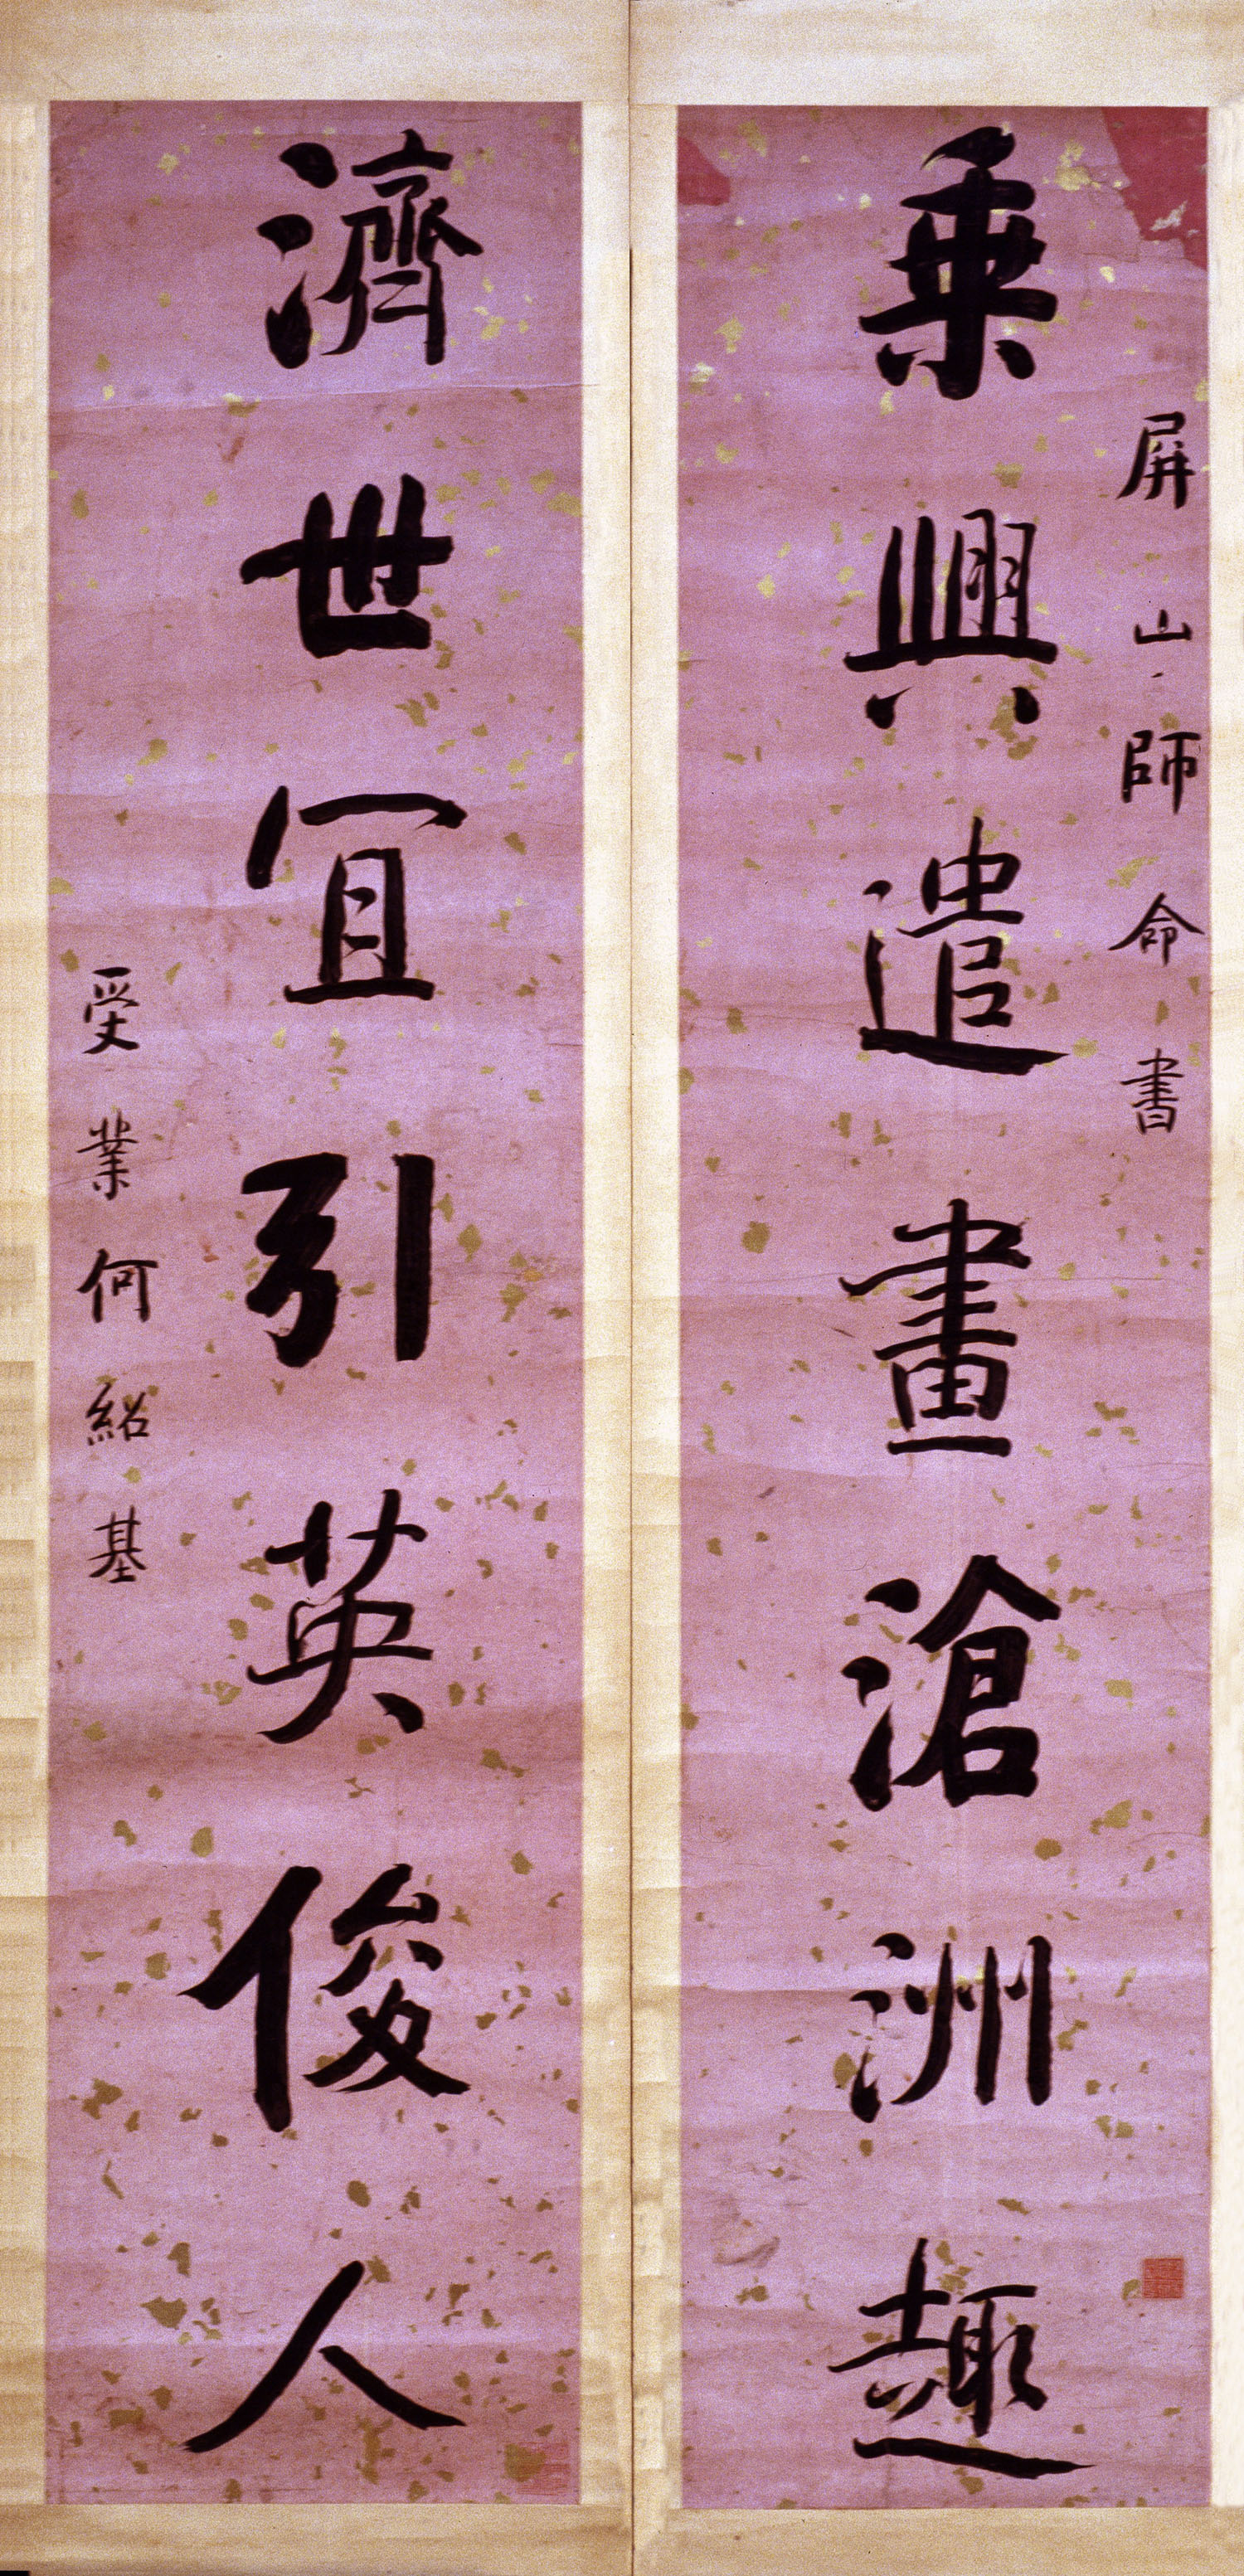 屏山師命書
乗興遣畫滄洲趣
濟世冝引英俊人
受業何紹基